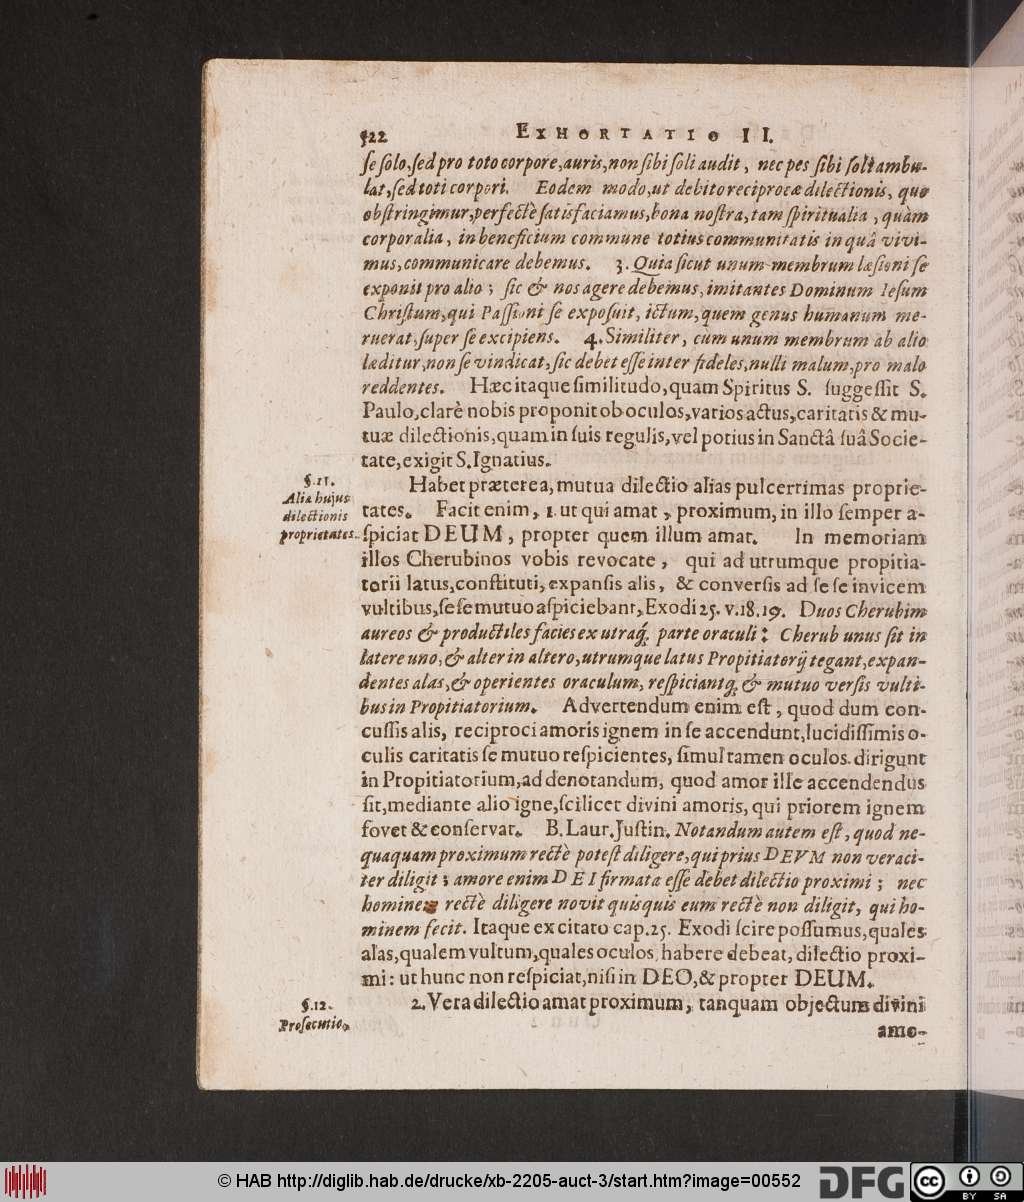 522 EXHORTATIO II.
ſe ſolo, ſed pro toto corpore, auris, non ſibi ſoli audit, nec pes ſibi ſoli ambu-
lat, ſed toti corpori. Eodem modo, ut debito reciprocæ dilectionis, quo
obſtringimur, perfectè ſatisfaciamus, bona noſtra, tam ſpiritualia, quàm
corporalia, in beneficium commune totius communitatis in quâ vivi-
mus, communicare debemus. 3. Quia ſicut unum membrum læſioni ſe
exponit pro alio; ſic & nos agere debemus, imitantes Dominum Ieſum
Chriſtum, qui Paſſioni ſe expoſuit, ictum, quem genus humanum me-
ruerat, ſuper ſe excipiens. 4. Similiter, cum unum membrum ab alio
læditur, non ſe vindicat, ſic debet eſſe inter fideles, nulli malum, pro malo
reddentes. Hæc itaque ſimilitudo, quam Spiritus S. ſuggeſſit S.
Paulo, clarè nobis proponit ob oculos, varios actus, caritatis & mu-
tuæ dilectionis, quam in ſuis regulis, vel potius in Sanctâ ſuâ Socie-
tate, exigit S. Ignatius.
§. 11.
Alia hujus
dilectionis
proprietates.
Habet præterea, mutua dilectio alias pulcerrimas proprie-
tates. Facit enim, 1. ut qui amat, proximum, in illo ſemper a-
ſpiciat DEUM, propter quem illum amat. In memoriam
illos Cherubinos vobis revocate, qui ad utrumque propitia-
torii latus, conſtituti, expanſis alis, & converſis ad ſe ſe invicem
vultibus, ſe ſe mutuo aſpiciebant, Exodi 25. v. 18. 19. Duos Cherubim
aureos & productiles facies ex utraq́; parte oraculi: Cherub unus ſit in
latere uno, & alter in altero, utrumque latus Propitiatorij tegant, expan-
dentes alas, & operientes oraculum, reſpiciantq́; & mutuo verſis vulti-
bus in Propitiatorium. Advertendum enim eſt, quod dum con-
cuſſis alis, reciproci amoris ignem in ſe accendunt, lucidiſſimis o-
culis caritatis ſe mutuo reſpicientes, ſimul tamen oculos dirigunt
in Propitiatorium, ad denotandum, quod amor ille accendendus
ſit, mediante alio igne, ſcilicet divini amoris, qui priorem ignem
fovet & conſervat. B. Laur. Juſtin. Notandum autem eſt, quod ne-
quaquam proximum rectè poteſt diligere, qui prius DEVM non veraci-
ter diligit; amore enim DEI firmata eſſe debet dilectio proximi; nec
hominem rectè diligere novit quisquis eum rectè non diligit, qui ho-
minem fecit. Itaque ex citato cap. 25. Exodi ſcire poſſumus, quales
alas, qualem vultum, quales oculos, habere debeat, dilectio proxi-
mi: ut hunc non reſpiciat, niſi in DEO, & propter DEUM.
§. 12.
Proſecutio.
2. Vera dilectio amat proximum, tanquam objectum divini
amo-
© HAB http://diglib.hab.de/drucke/xb-2205-auct-3/start.htm?image=00552
DFG
cc
BY SA